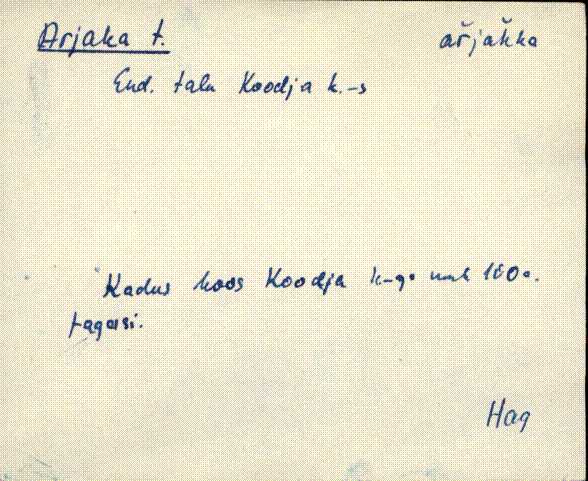 Arjaka t. ařjak̆ka
End. talu Koodja k.-s
Kadus koos Koodja k-ga umb 100 a.
tagasi.
Hag